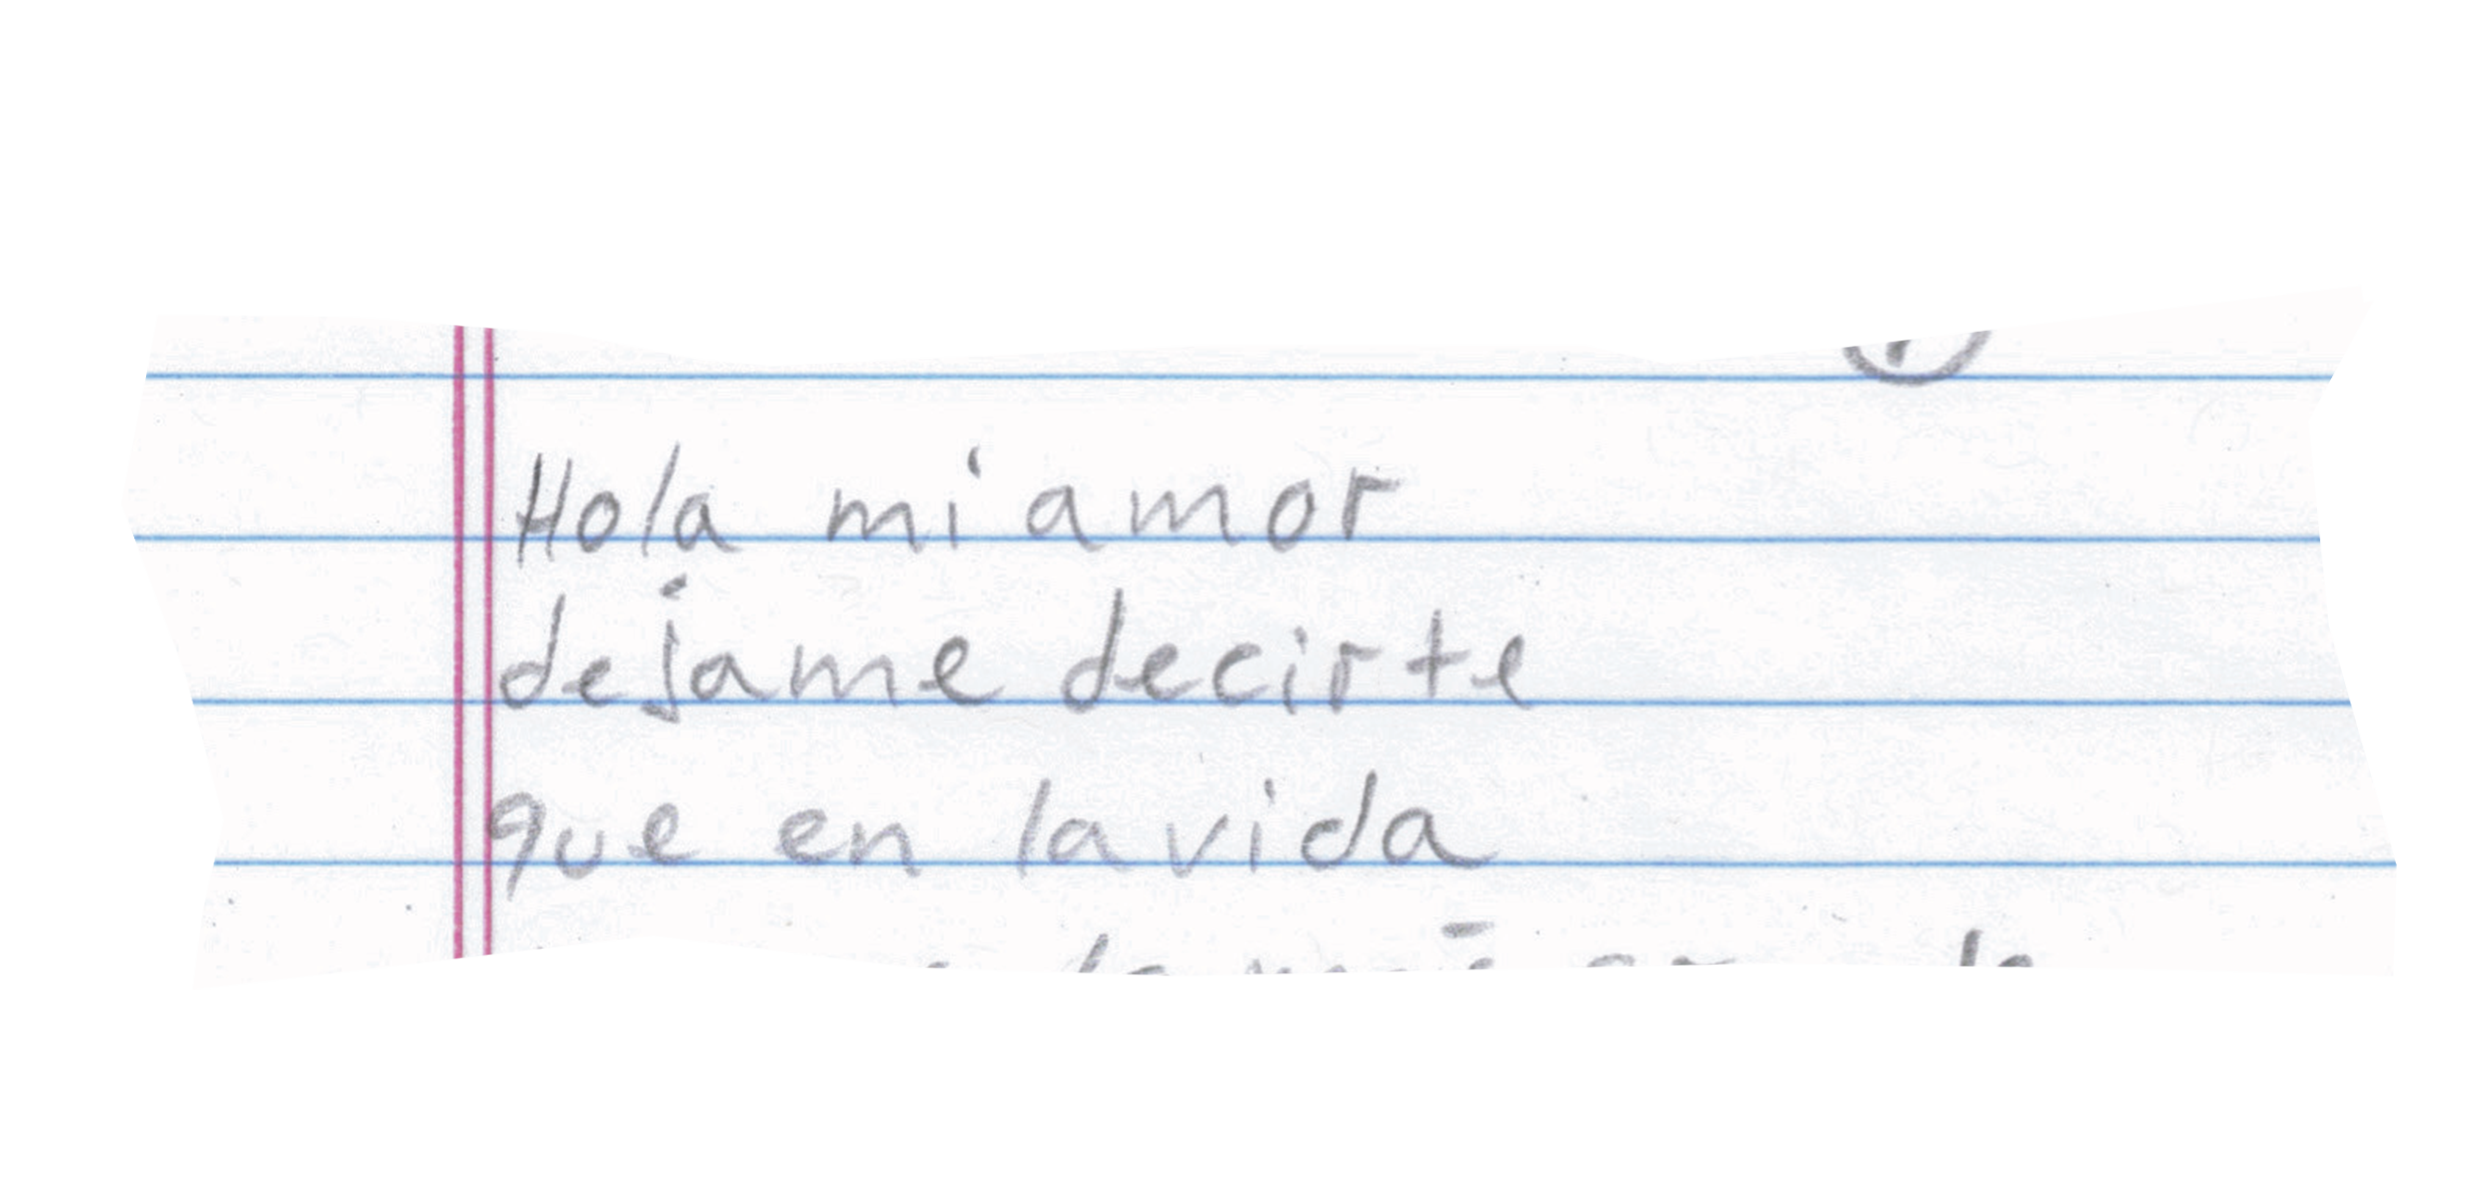 Hola mi amor
dejame decirte
que en la vida